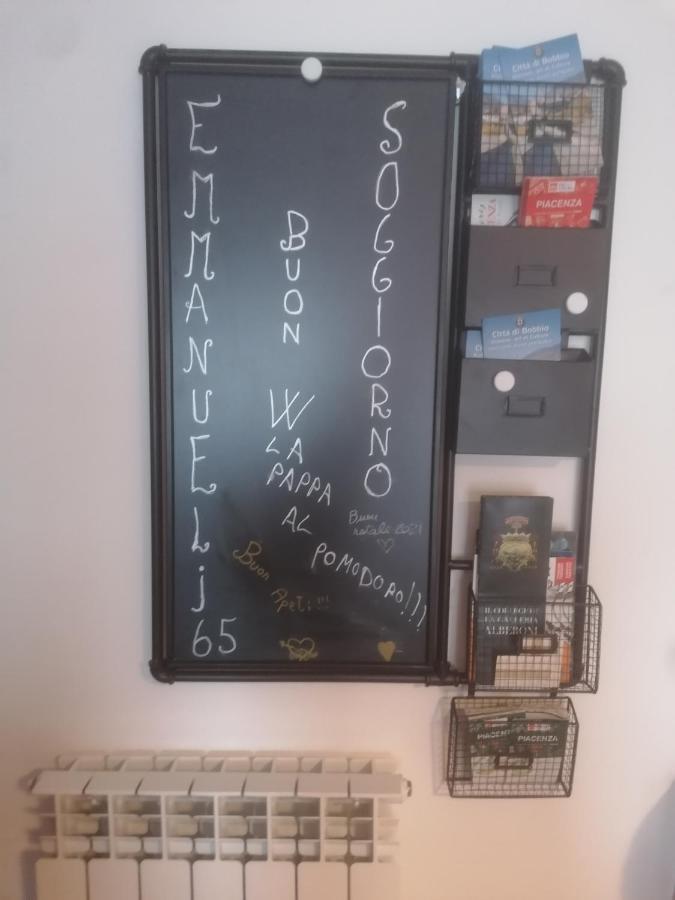 EMMANUELj
65
BUON
SOGGIORNO
W
LA
PAPPA
AL
POMODORO!!!
Buon
natale 2021
Buon
Apeti!!!
Città di Bobbio
PIACENZA
Città di Bobbio
IL COLLEGIO E
LA GALLERIA
ALBERONI
PIACENZA
PIACENZA